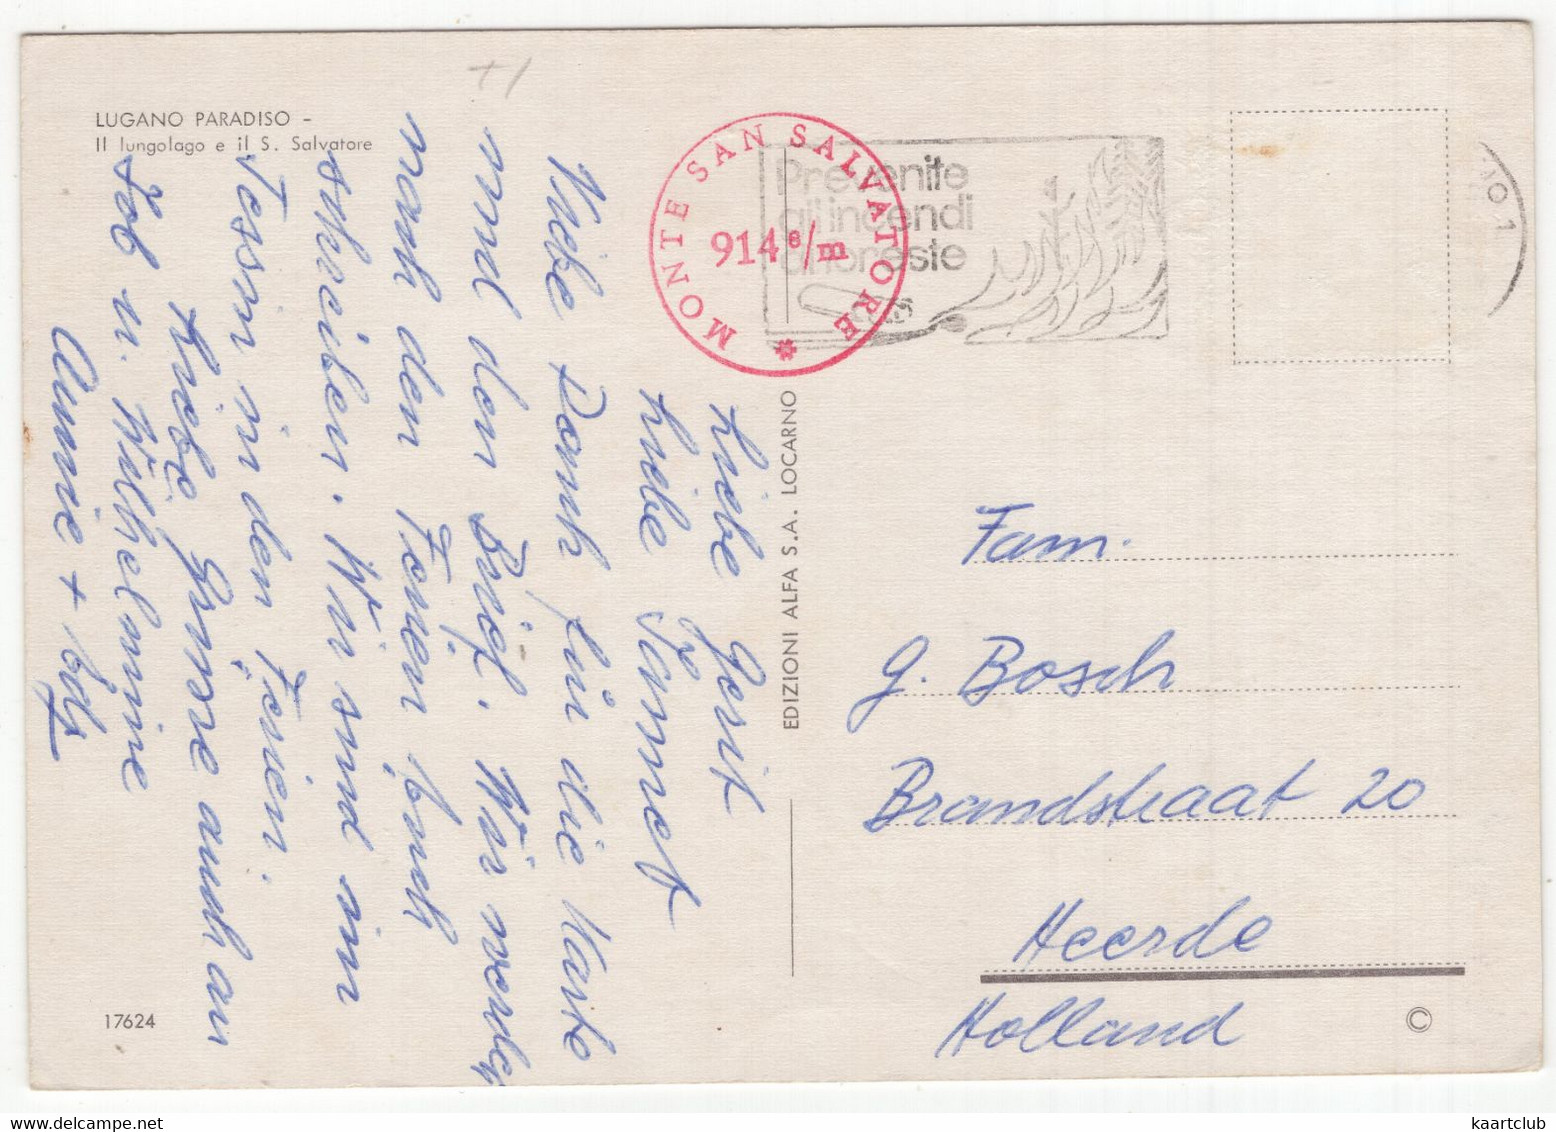 LUGANO PARADISO -
Il lungolago e il S. Salvatore
MONTE SAN SALVATORE
914 e/m
Prevenite
gl'incendi
di foreste
Liebe Gerit
Liebe Jannet
Viele Dank für die Karte
und den Brief. Wir werden
nach den Ferien Euch
schreiben. Wir sind im
Tessin in den Ferien.
Liebe Grüsse auch an
Job u. Wilhelmine
Annie +
EDIZIONI ALFA S.A. LOCARNO
Fam.
G. Bosch
Brandstraat 20
Heerde
Holland
17624
©
kaartclub
www.delcampe.net